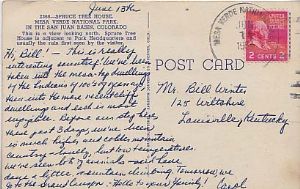 June 13th
2388—SPRUCE TREE HOUSE,
MESA VERDE NATIONAL PARK,
IN THE SAN JUAN BASIN, COLORADO
This is a view looking north. Spruce Tree
House is adjacent to Park Headquarters and
usually the ruin first seen by the visitor.
Hi, Bill! - This is really
interesting country! We've been
taken into the mesa-top dwellings
of the Indians of 700's years ago
then into the more
dwellings and each is more
enjoyable. Before our stop here
these past 3 days we've been
in much higher and colder mountain
country
we've seen lots of and have
done a little mountain climbing. Tomorrow we
go to the Grand Canyon - Hello to your family!
Carol
POST CARD
MESA VERDE NATIONAL
2 CENTS 2
Mr. Bill
125 Wiltshire
Louisville, Kentucky